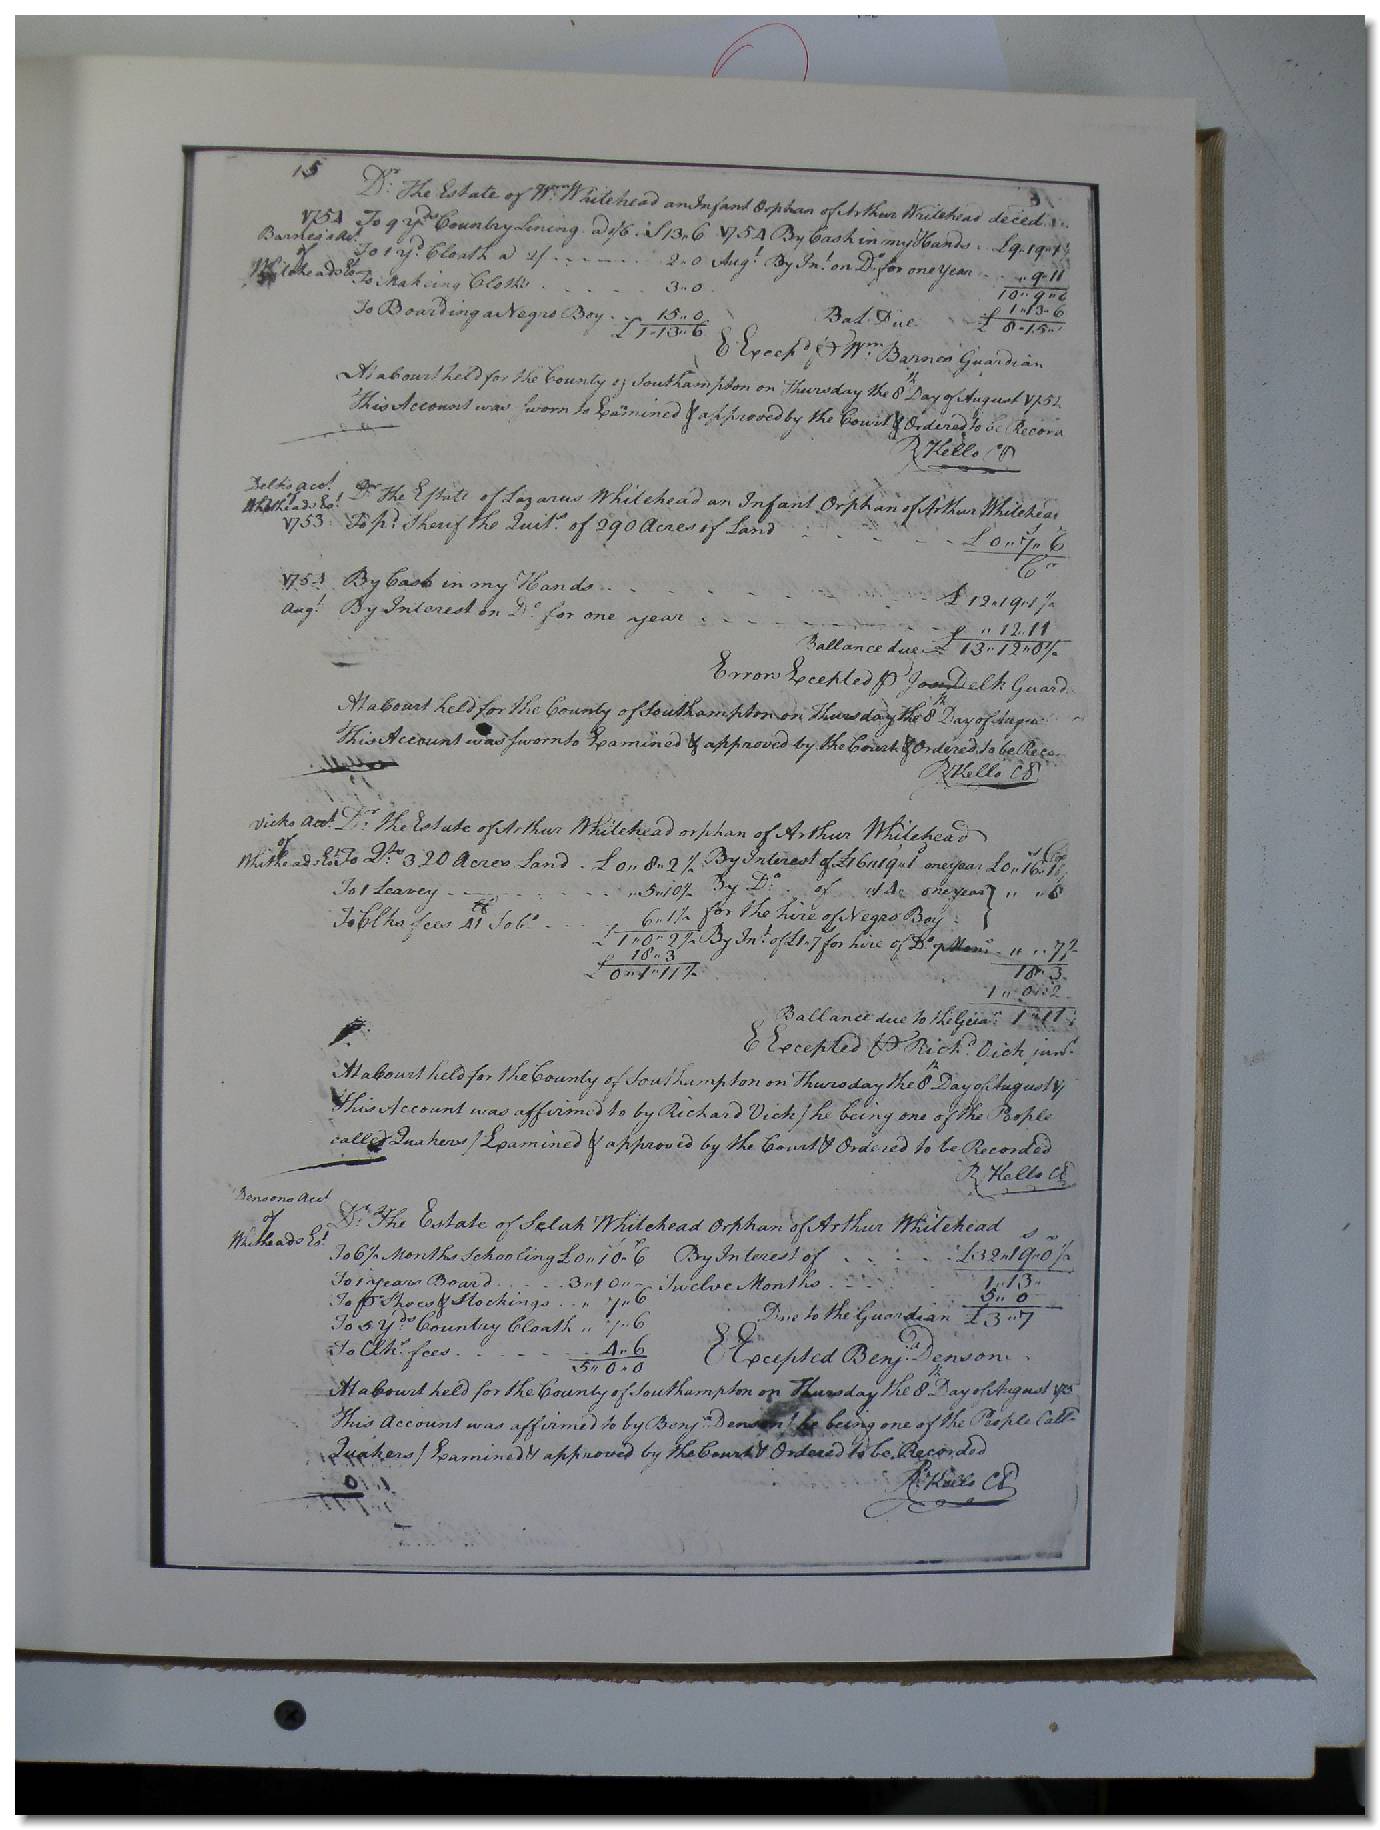 15
Dr. The Estate of Wm. Whitehead an Infant Orphan of Arthur Whitehead deced.
1754 To 9 Yds Country Lining a 1/6 £13"6 1754 By Cash in my Hands £9"19"7
Barnes's Act. of Whiteheads Est.
To 1 yd. Cloath a 2/ 2"0 Augt. By Int. on Do. for one Year " 9"11
To Making Cloths 3"0 10"9"6
To Boarding a Negro Boy 15"0 Bal. Due 1"13"6
£1"13"6 £8"15"
E Except'd P Wm. Barnes Guardian
At a Court held for the County of Southampton on Thursday the 8th Day of August
This Account was Sworn to Examined & approved by the Court & Ordered to be Record
R Kello CC
Delks Act. of Whiteheads Est.
Dr the Estate of Lazarus Whitehead an Infant Orphan of Arthur Whitehead
1753 To pd. Sherif the Quits. of 290 Acres of Land £0"7"6
Cr
1753 By Cash in my Hands £12"19"1½
Augt. By Interest on Do. for one year " 12"11
Ballance due £13"12"0½
Errors Excepted P Delk Guard
At a Court held for the County of Southampton on Thursday the 8th Day of Augu
This Account was Sworn to Examined & approved by the Court & Ordered to be Reco
R Kello CC
Vicks Act. of Whiteheads Est.
Dr. the Estate of Arthur Whitehead orphan of Arthur Whitehead
To Qts. 320 Acres Land £0"8"2½ By Interest of £16"19"1 one year £0"16"
To 1 Leavey "5"10½ By Do. of one year } " "6
To Clks fees 6"1½ for the hire of Negro Boy
£1"0"2½ By Int. of £1"7 for hire of Do. " "7½
18"3 18"3
£0"1"11½ 1"0"2
Ballance due to the Guar. 1"11
E Excepted P Richd. Vick junr.
At a Court held for the County of Southampton on Thursday the 8th Day of August
This Account was affirmed to by Richard Vick / he being one of the People
called Quakers / Examined & approved by the Court & Ordered to be Recorded
R Kello CC
Densons Act. of Whiteheads Est.
Dr. The Estate of Selah Whitehead Orphan of Arthur Whitehead
To 6½ Months Schooling £0"10"6 By Interest of £32"19"0½
To 1 years Board 3"10" Twelve Months 1"13"
To pr Shoes & Stockings " 7"6 5"0
To 5 Yds Country Cloath " 7"6 Due to the Guardian £3"7
To Clks. fees 4"6 E Excepted Benja. Denson
5"0"0
At a Court held for the County of Southampton on Thursday the 8th Day of August
This Account was affirmed to by Benja. Denson / he being one of the People Call
Quakers / Examined & approved by the Court & Ordered to be Recorded
R Kello CC